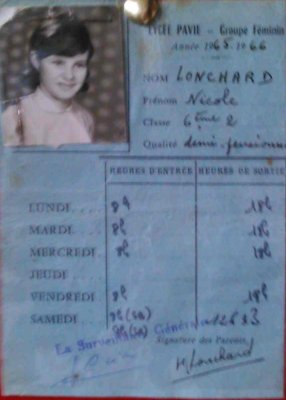 LYCÉE PAVIE – Groupe Féminin
Année 1965-1966
NOM LONCHARD
Prénom Nicole
Classe 6ème 2
Qualité demi-pensionn
HEURES D'ENTRÉE HEURES DE SORTIE
LUNDI.... 8h 18h
MARDI.... 8h 18h
MERCREDI. 8h 18h
JEUDI....
VENDREDI. 8h 18h
SAMEDI....
La Surveillante Générale
Signature des Parents,
Lonchard